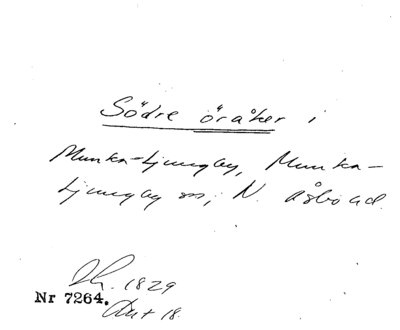 Södre öråker i
Munka-Ljungby, Munka-
Ljungby sn, N. Åsbo hd.
1829
Nr 7264.
18.